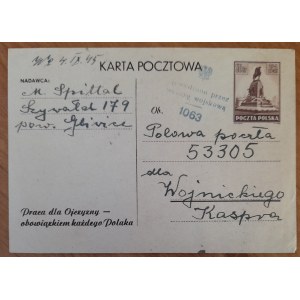 4 IX 45
KARTA POCZTOWA
NADAWCA:
M Spittal
Szywałd 179
pow. Gliwice
1063
POCZTA POLSKA
Ob.
Polowa poczta
53305
dla
Wojnickiego
Kaspra
Praca dla Ojczyzny —
obowiązkiem każdego Polaka